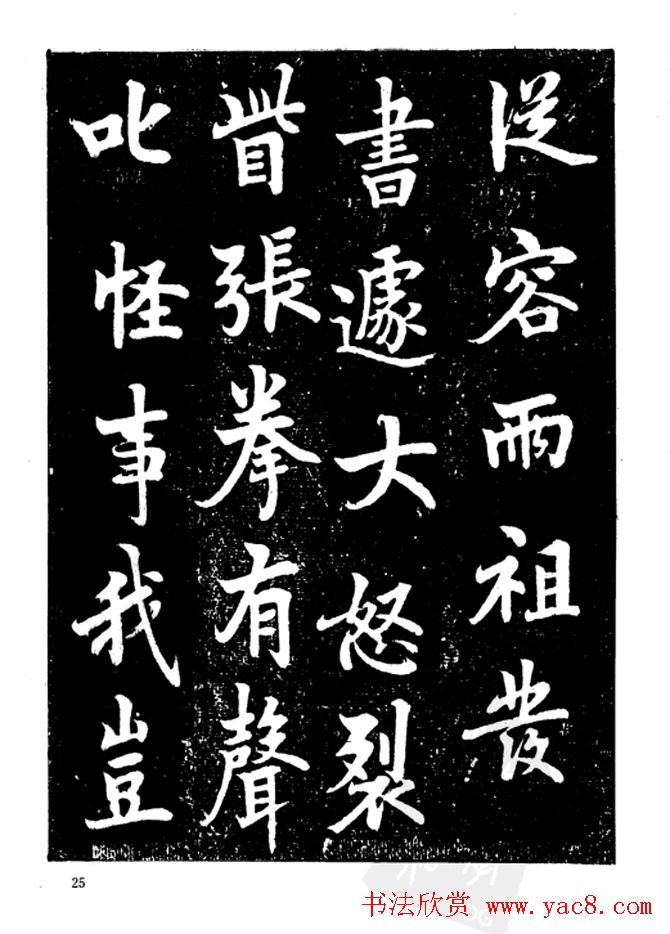 従容両祖發
書遽大怒裂
眥張拳有聲
叱怪事我豈
25
书法欣赏 www.yac8.com